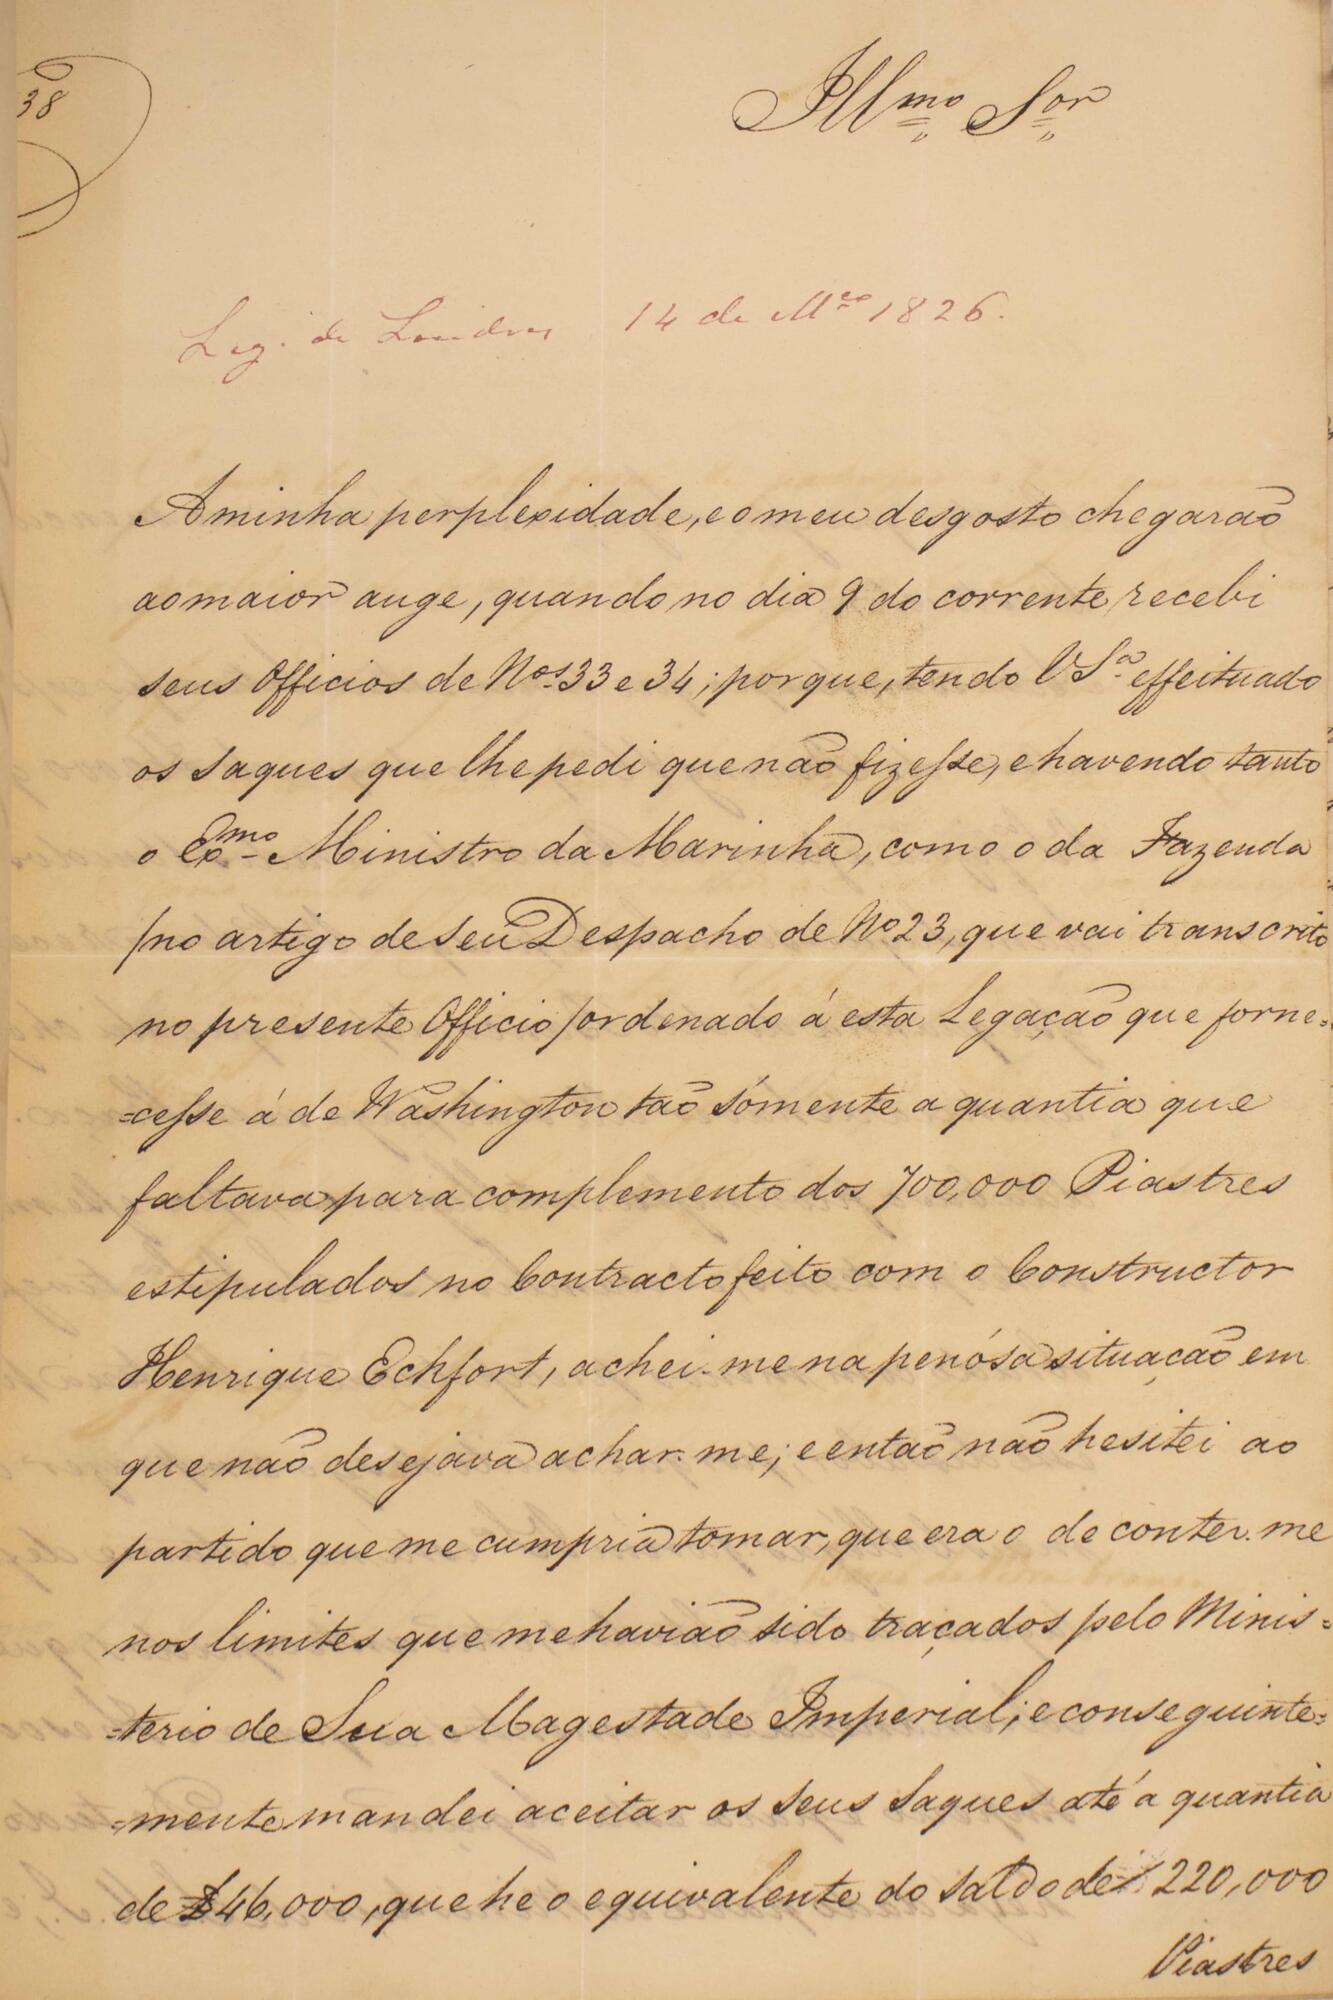 38
Illmo Sor
Leg. de Londres 14 de Mço 1826.
A minha perplexidade, e o meu desgosto chegarão
ao maior auge, quando no dia 9 do corrente recebi
seus Officios de Nos 33 e 34; porque, tendo VSa effeituado
os saques que lhe pedi que não fizesse, e havendo tanto
o Exmo Ministro da Marinha, como o da Fazenda
/no artigo de seu Despacho de No 23, que vai transcrito
no presente Officio/ ordenado á esta Legação que forne=
=cesse á de Washington tão sómente a quantia que
faltava para complemento dos 700,000 Piastres
estipulados no Contracto feito com o Constructor
Henrique Eckfort, achei-me na penósa situação em
que não desejava achar-me; e então não hesitei ao
partido que me cumpria tomar, que era o de conter-me
nos limites que me havião sido traçados pelo Minis=
=terio de Sua Magestade Imperial; e conseguinte=
=mente mandei aceitar os seus saques até a quantia
de £46,000, que he o equivalente do saldo de 220,000
Piastres